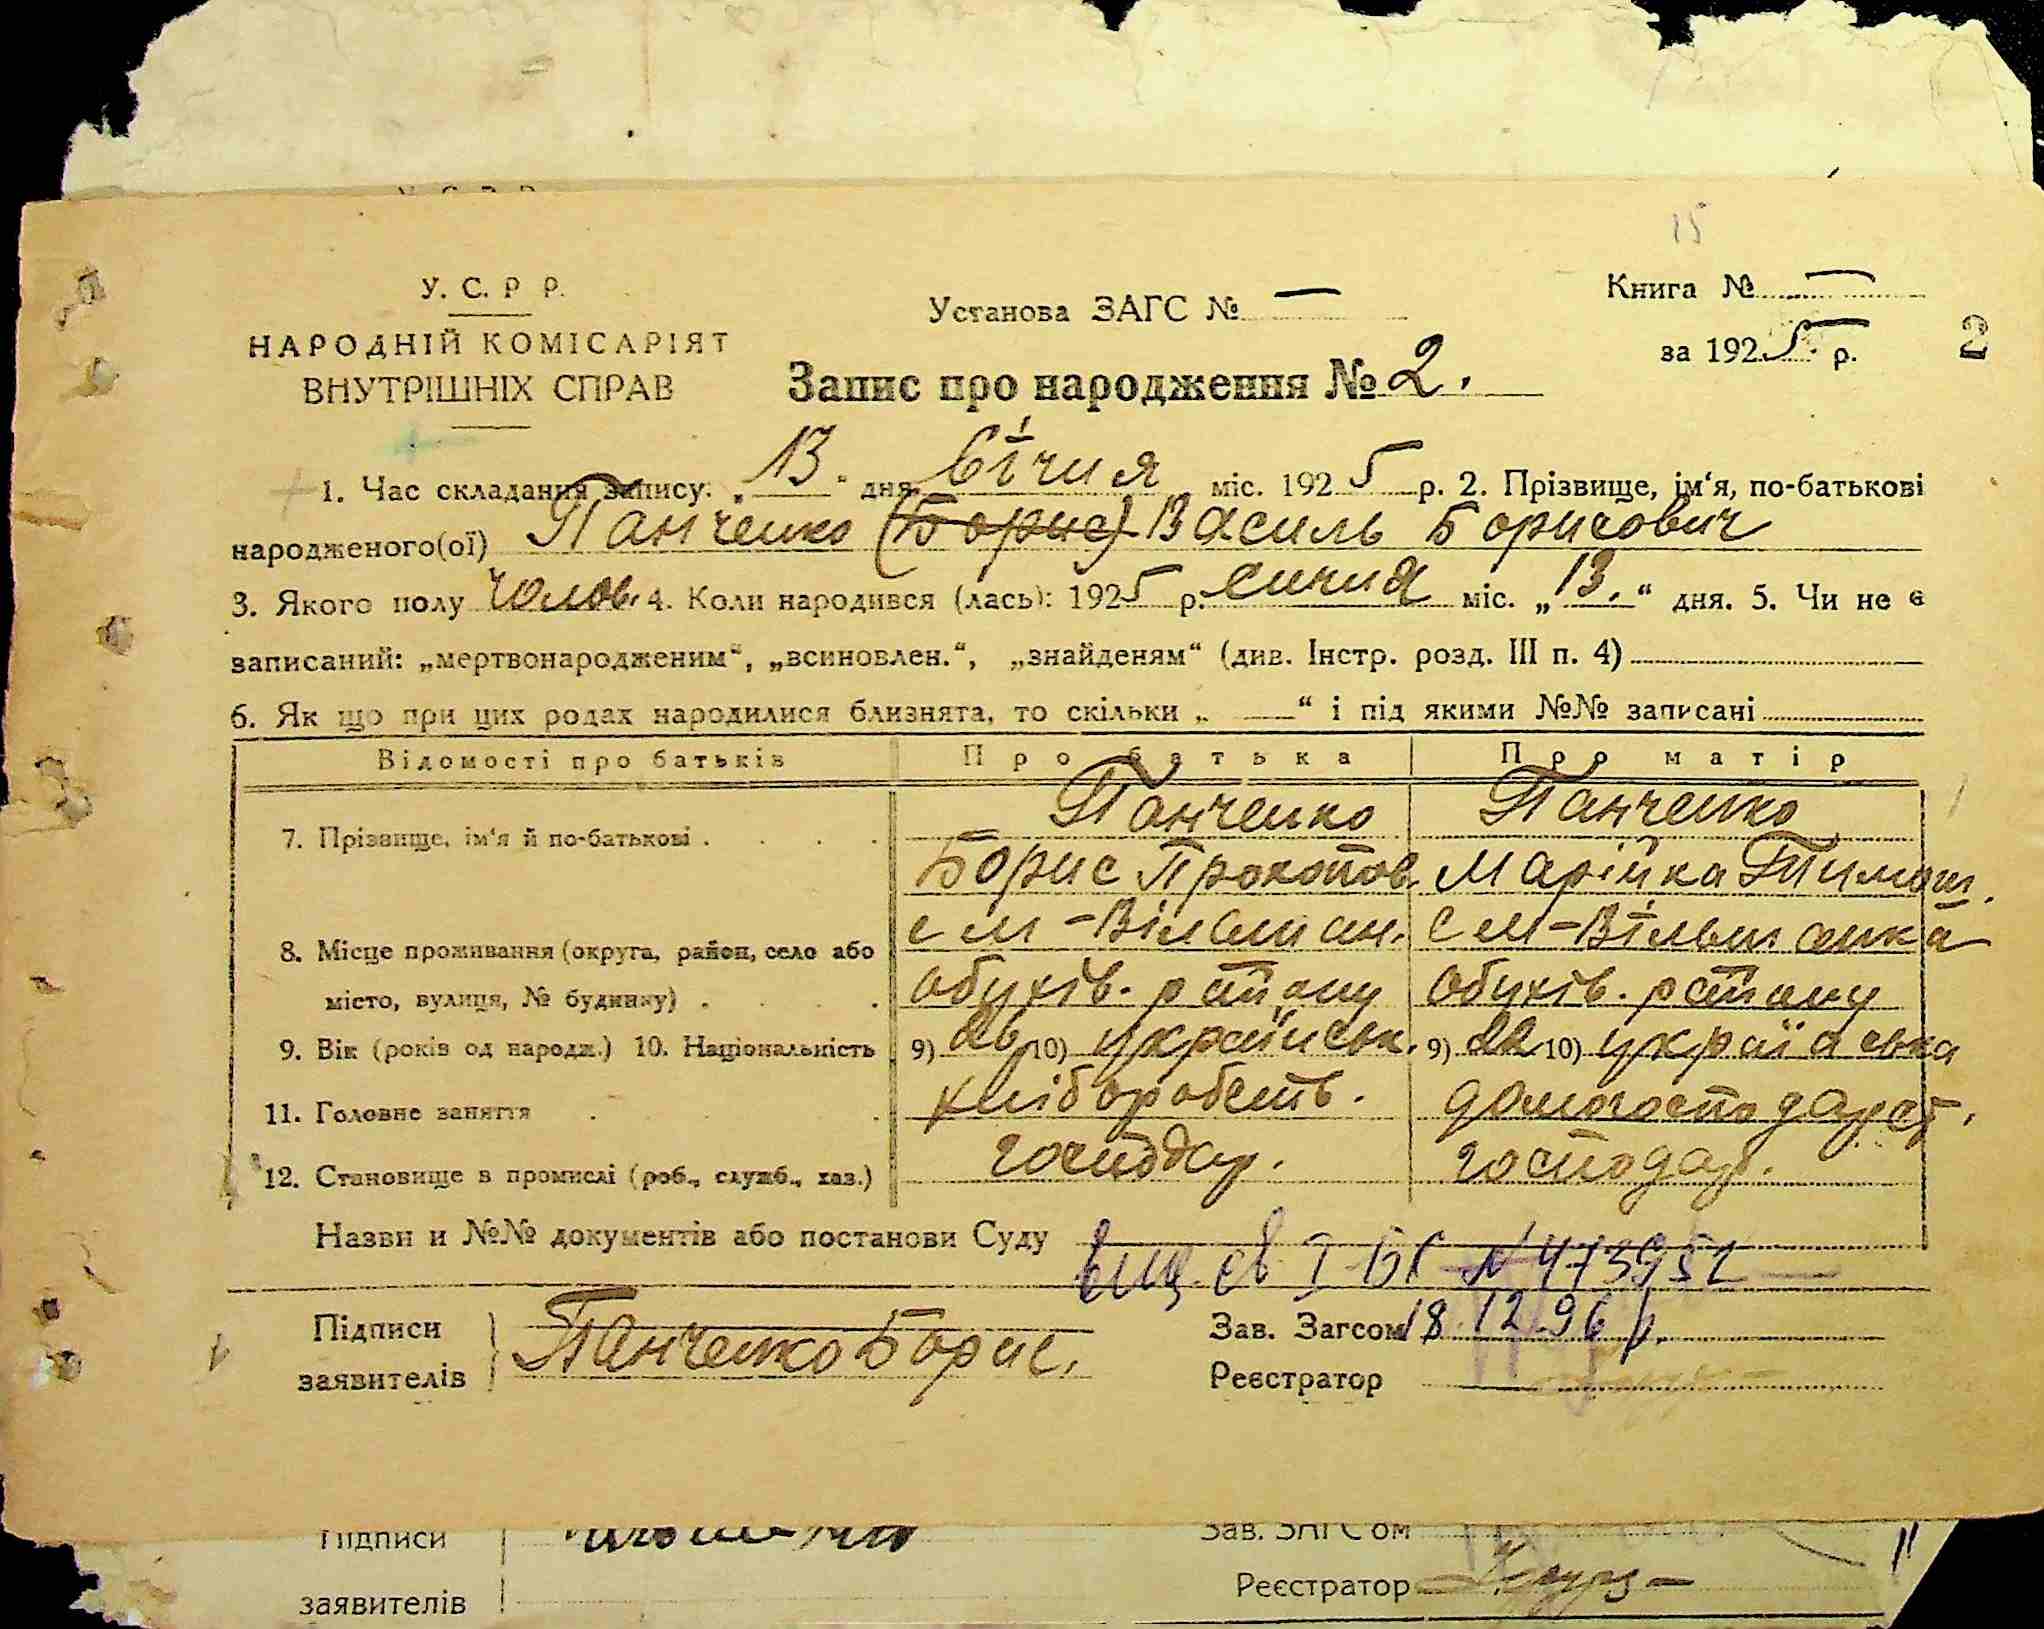 15
У. С. Р Р.
Установа ЗАГС № —
Книга № —
НАРОДНІЙ КОМІСАРІЯТ
за 1925 р.
2
ВНУТРІШНІХ СПРАВ
Запис про народження № 2.
1. Час складання запису: „13." дня січня міс. 1925 р. 2. Прізвище, ім'я, по-батькові
народженого(ої) Панченко (Борис) Василь Борисович
3. Якого полу чолов. 4. Коли народився (лась): 1925 р. сичня міс. „13." дня. 5. Чи не є
записаний: „мертвонародженим", „всиновлен.", „знайденям" (див. Інстр. розд. III п. 4)
6. Як що при цих родах народилися близнята, то скільки „ — " і під якими №№ записані
Відомості про батьків Про батька Про матір
7. Прізвище, ім'я й по-батькові . Панченко Панченко
Борис Прокопов. Марійка Тимош.
8. Місце проживання (округа, район, село або с М-Вільшан. с М-Вільшанка
місто, вулиця, № будинку) . Обухів. району Обухів. району
9. Вік (років од народж.) 10. Національність 9) 26 10) українськ. 9) 22 10) українська
11. Головне заняття хліборобств. домогосподарст.
12. Становище в промислі (роб., служб., хаз.) господар. господар.
Назви и №№ документів або постанови Суду
св І-БК № 473951
Підписи Панченко Борис.
заявителів
Зав. Загсом 18.12.96 р.
Реєстратор
Підписи
Зав. ЗАГС ом
заявителів
Реєстратор